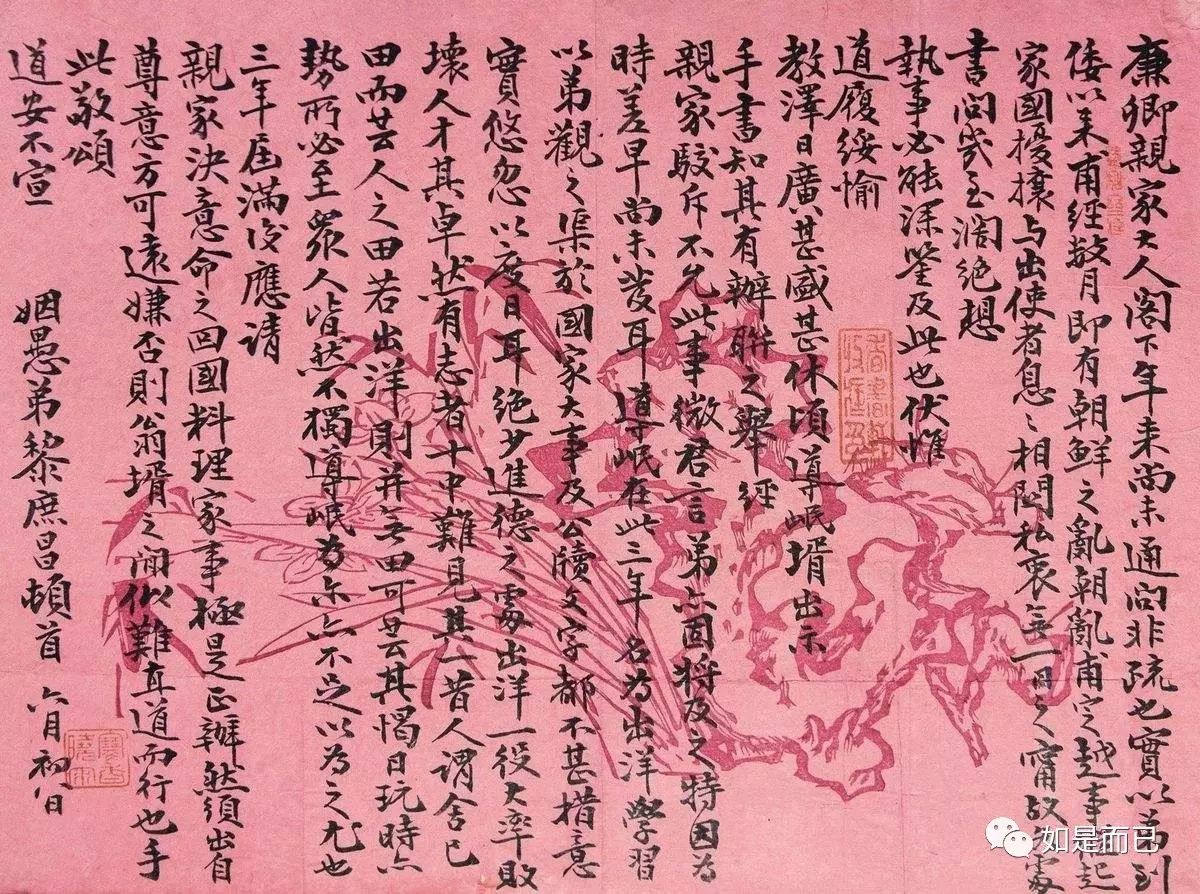 廉卿親家大人閣下年來尚未通問非疏也實以弟到
倭以來甫經數月即有朝鮮之亂朝亂甫定越事起
家國擾攘與出使者息息相關私衷無一日之甯故處
書問幾至濶絕想
執事必能深鑒及此也伏惟
道履綏愉
教澤日廣甚盛甚休頃導岷壻出示
手書知其有辦聯之舉經
親家駮斥不允此事微君言弟亦固將及之特因為
時差早尚未發耳導岷在此三年名為出洋學習
以弟觀之渠於國家大事及公牘文字都不甚措意
實悠忽以度日耳絕少進德之處出洋一役大率敗
壞人才其卓然有志者十中難見其一昔人謂舍己
田而芸人之田若出洋則并無田可芸其愒日玩時亦
勢所必至眾人皆然不獨導岷為尔亦不足以為之尤也
三年屆滿後應請
親家決意命之回國料理家事極是正辦然須出自
尊意方可遠嫌否則翁壻之間似難直道而行也手
此敬頌
道安不宣 姻愚弟黎庶昌頓首 六月初八日
如是而已